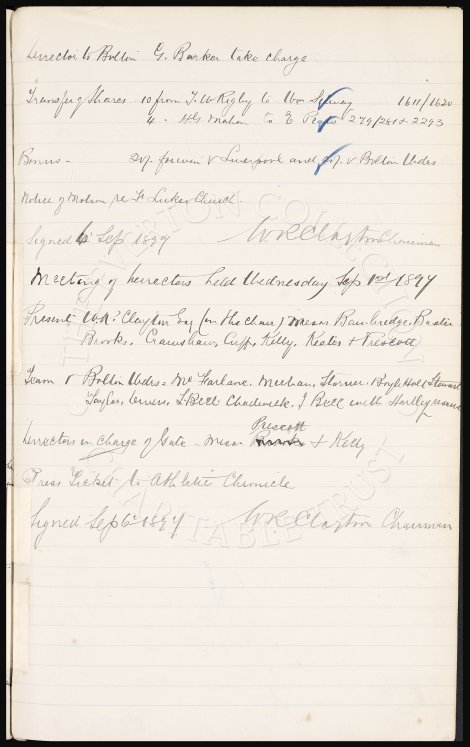 Director to Bolton G. Barker take charge
Transfer of Shares. 10 from T. W. Rigby to Wm 1611/1620
4. H.G. to E 279/281 + 2293
Bonus - 20/- for win v Liverpool and v Bolton Wdrs
Notice of Motion re St Lukes Church.
Signed 6 Sep 1897 W R Clayton Chairman
Meeting of Directors held Wednesday Sep 1st/1897
Present W. R. Clayton Esq (in the chair) Messrs Bainbridge, Baxter
Brooks, Cuff, Kelly, Keates + Prescott
Team v Bolton Wdrs = McFarlane. Meehan, Storrier, Boyle Holt Stewart
Taylor, L Bell Chadwick, J Bell with Hartley reserve
Directors in charge of Gate - Messrs Prescott + Kelly
Press Ticket to Athletic Chronicle
Signed Sep 6 1897 W R Clayton Chairman
THE EVERTON COLLECTION CHARITABLE TRUST